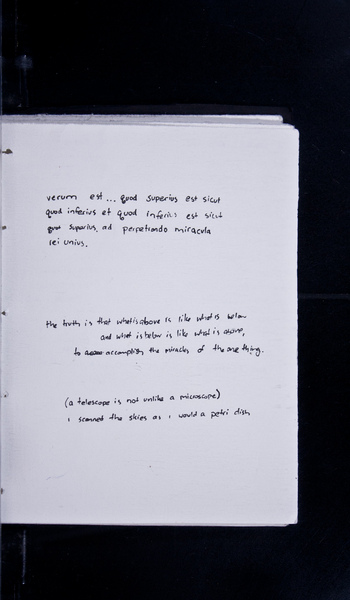 verum est... quod superius est sicut
quod inferius et quod inferius est sicut
quod superius, ad perpetrando miracula
rei unius.
the truth is that what is above is like what is below
and what is below is like what is above,
to accomplish the miracles of the one thing.
(a telescope is not unlike a microscope)
i scanned the skies as i would a petri dish